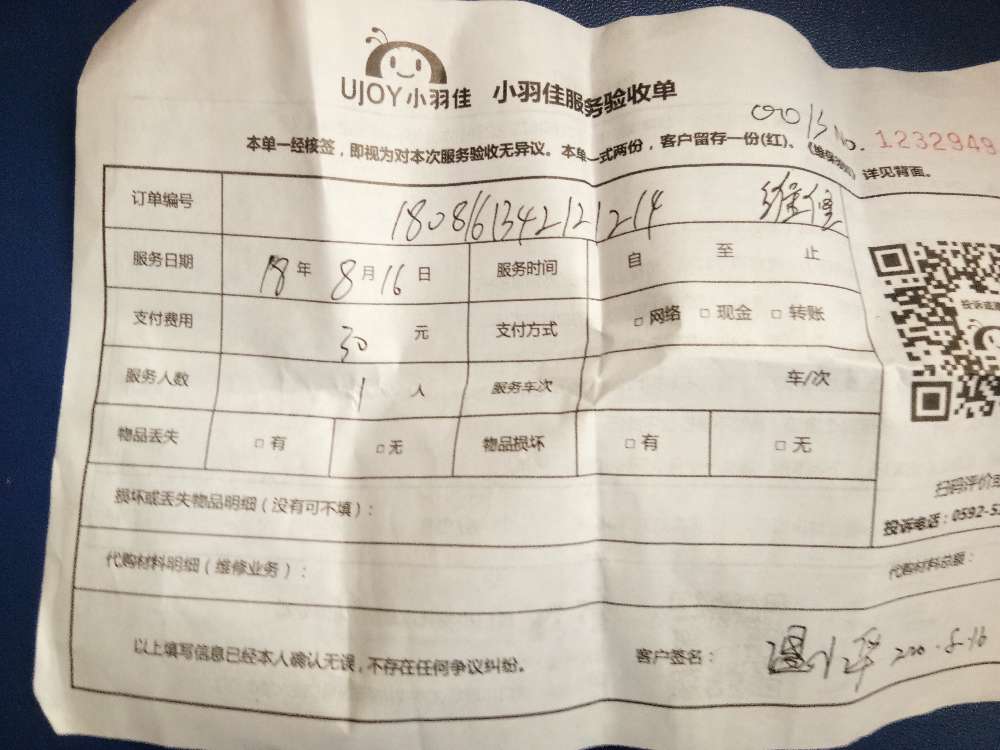 UJOY小羽佳 小羽佳服务验收单
No. 1232949
本单一经核签，即视为对本次服务验收无异议。本单一式两份，客户留存一份(红)、 详见背面。
订单编号 180861342121214
服务日期 18年 8月16日 服务时间 自 至 止
支付费用 30 元 支付方式 □网络 □现金 □转账
服务人数 1 人 服务车次 车/次
物品丢失 □有 □无 物品损坏 □有 □无
投诉或
损坏或丢失物品明细（没有可不填）：
扫码评价
投诉电话：0592-5
代购材料明细（维修业务）： 代购材料总额：
以上填写信息已经本人确认无误，不存在任何争议纠纷。 客户签名：